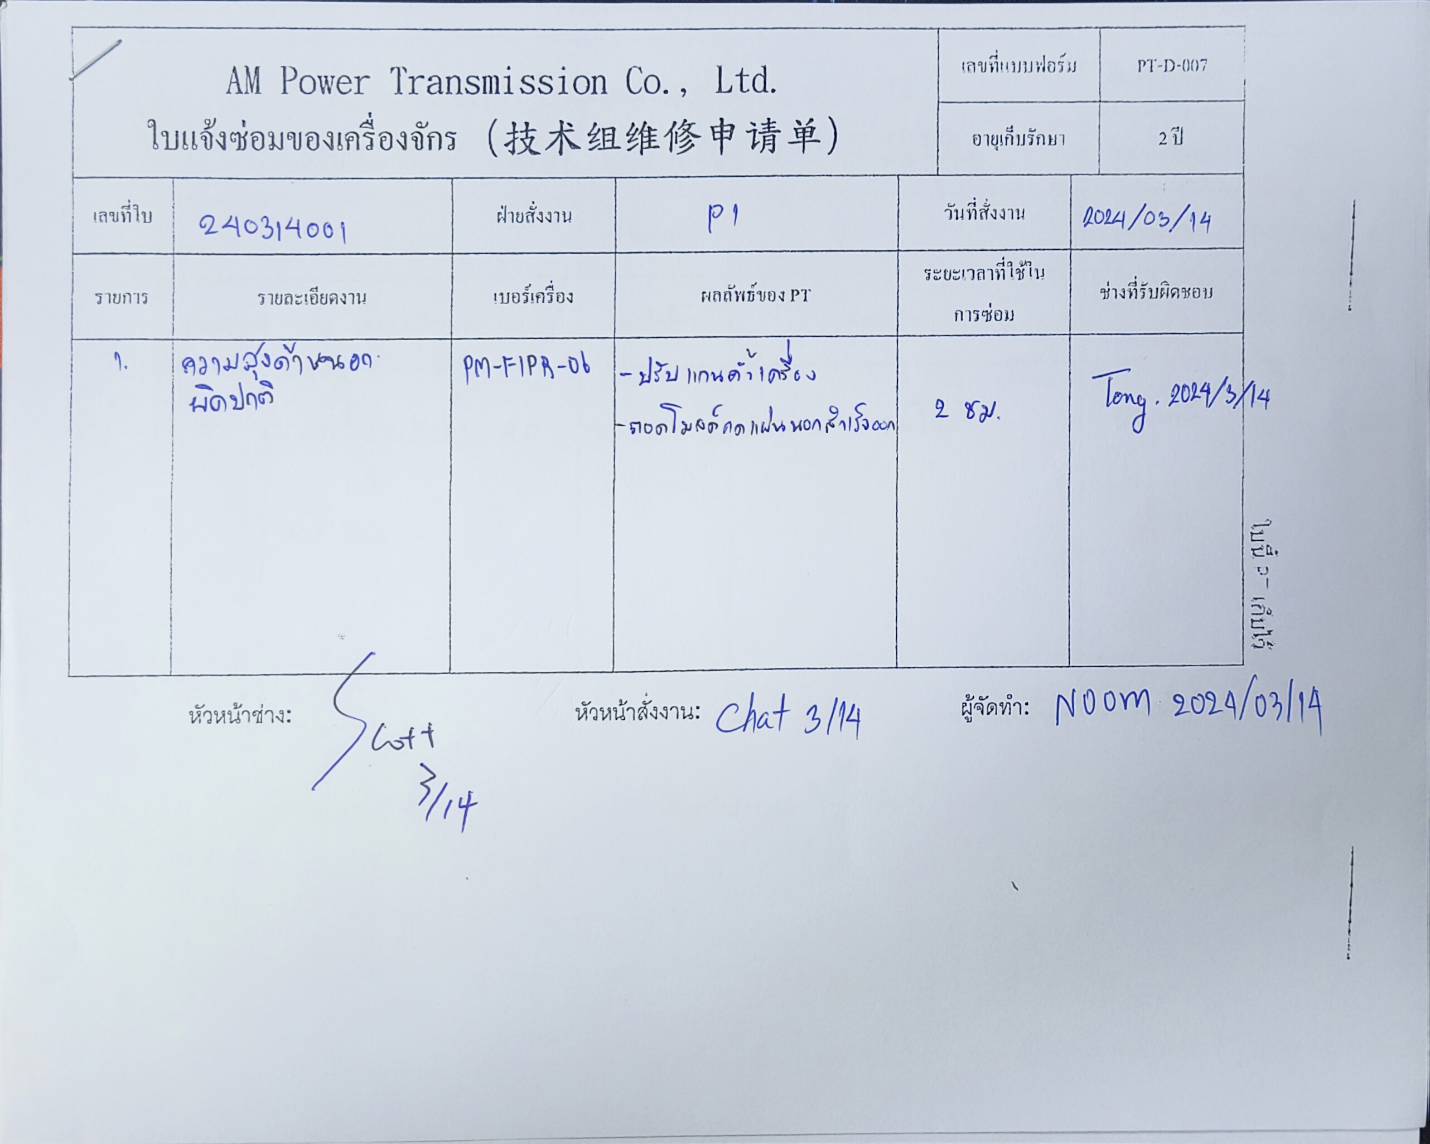 AM Power Transmission Co., Ltd.
ใบแจ้งซ่อมของเครื่องจักร (技术组维修申请单)
เลขที่แบบฟอร์ม PT-D-007
อายุเก็บรักษา 2 ปี
เลขที่ใบ 240314001 ฝ่ายสั่งงาน P1 วันที่สั่งงาน 2024/03/14
รายการ รายละเอียดงาน เบอร์เครื่อง ผลลัพธ์ของ PT ระยะเวลาที่ใช้ใน
การซ่อม
ช่างที่รับผิดชอบ
1. ความสูงด้านนอก
ผิดปกติ
PM-FIPR-06
- ปรับแกนค้ำเครื่อง
- ถอดโมลด์กดแผ่นนอกสำเร็จออก
2 ชม.
Tong. 2024/3/14
หัวหน้าช่าง: Scott
3/14
หัวหน้าสั่งงาน: Chat 3/14
ผู้จัดทำ: Noom 2024/03/14